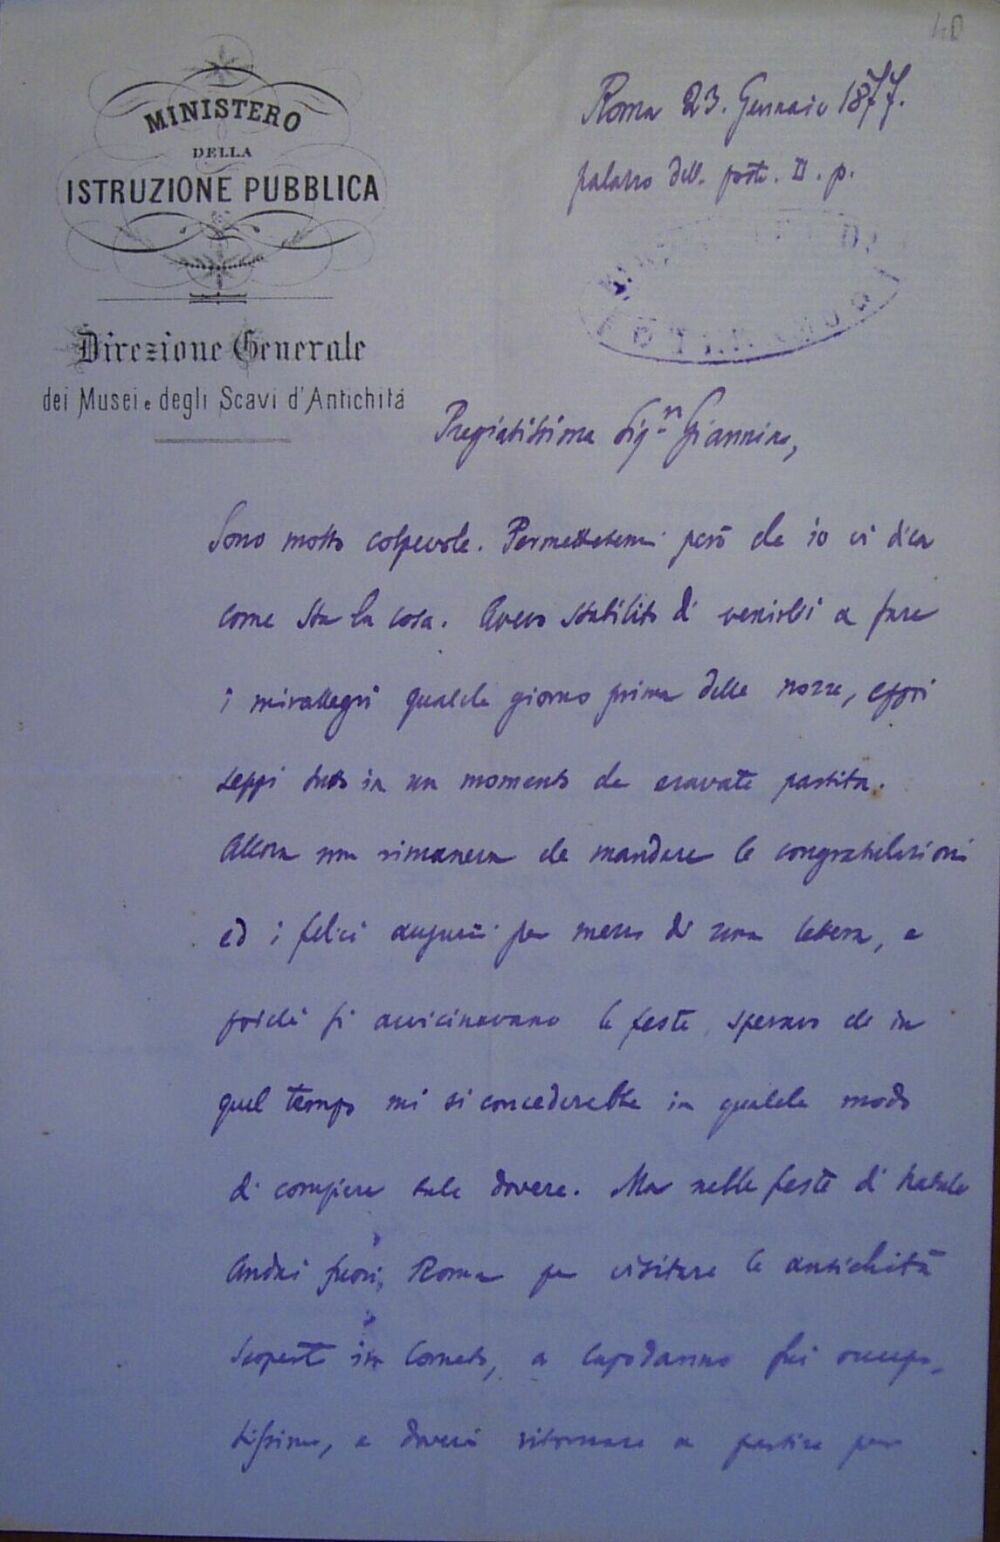 40
MINISTERO
DELLA
ISTRUZIONE PUBBLICA
Direzione Generale
dei Musei e degli Scavi d'Antichità
Roma 23. Gennaio 1877.
palazzo dell. poste. II. p.
Pregiatissima Sigra Giannina,
Sono molto colpevole. Permettetemi però che io vi dica
come sta la cosa. Avevo stabilito di venirvi a fare
i mirallegri qualche giorno prima delle nozze, eppoi
seppi tutto in un momento che eravate partita.
Allora non rimaneva che mandare le congratulazioni
ed i felici augurii per mezzo di una lettera, e
poichè si avvicinavano le feste, speravo che in
quel tempo mi si concederebbe in qualche modo
di compiere tale dovere. Ma nelle feste di Natale
andai fuori, Roma per visitare le antichità
scoperte in Corneto, a capodanno fui occupa-
tissimo, e dovei ritornare a partire per